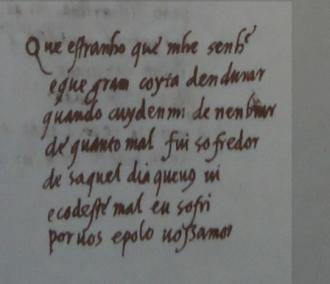 Que estranho que mhe senher
e que gram coyta dendurar
quando cuyden mi de nenbrar
de quanto mal fui sofredor
de saquel dia que uos ui
e todeste mal eu sofri
por uos e polo uossamor